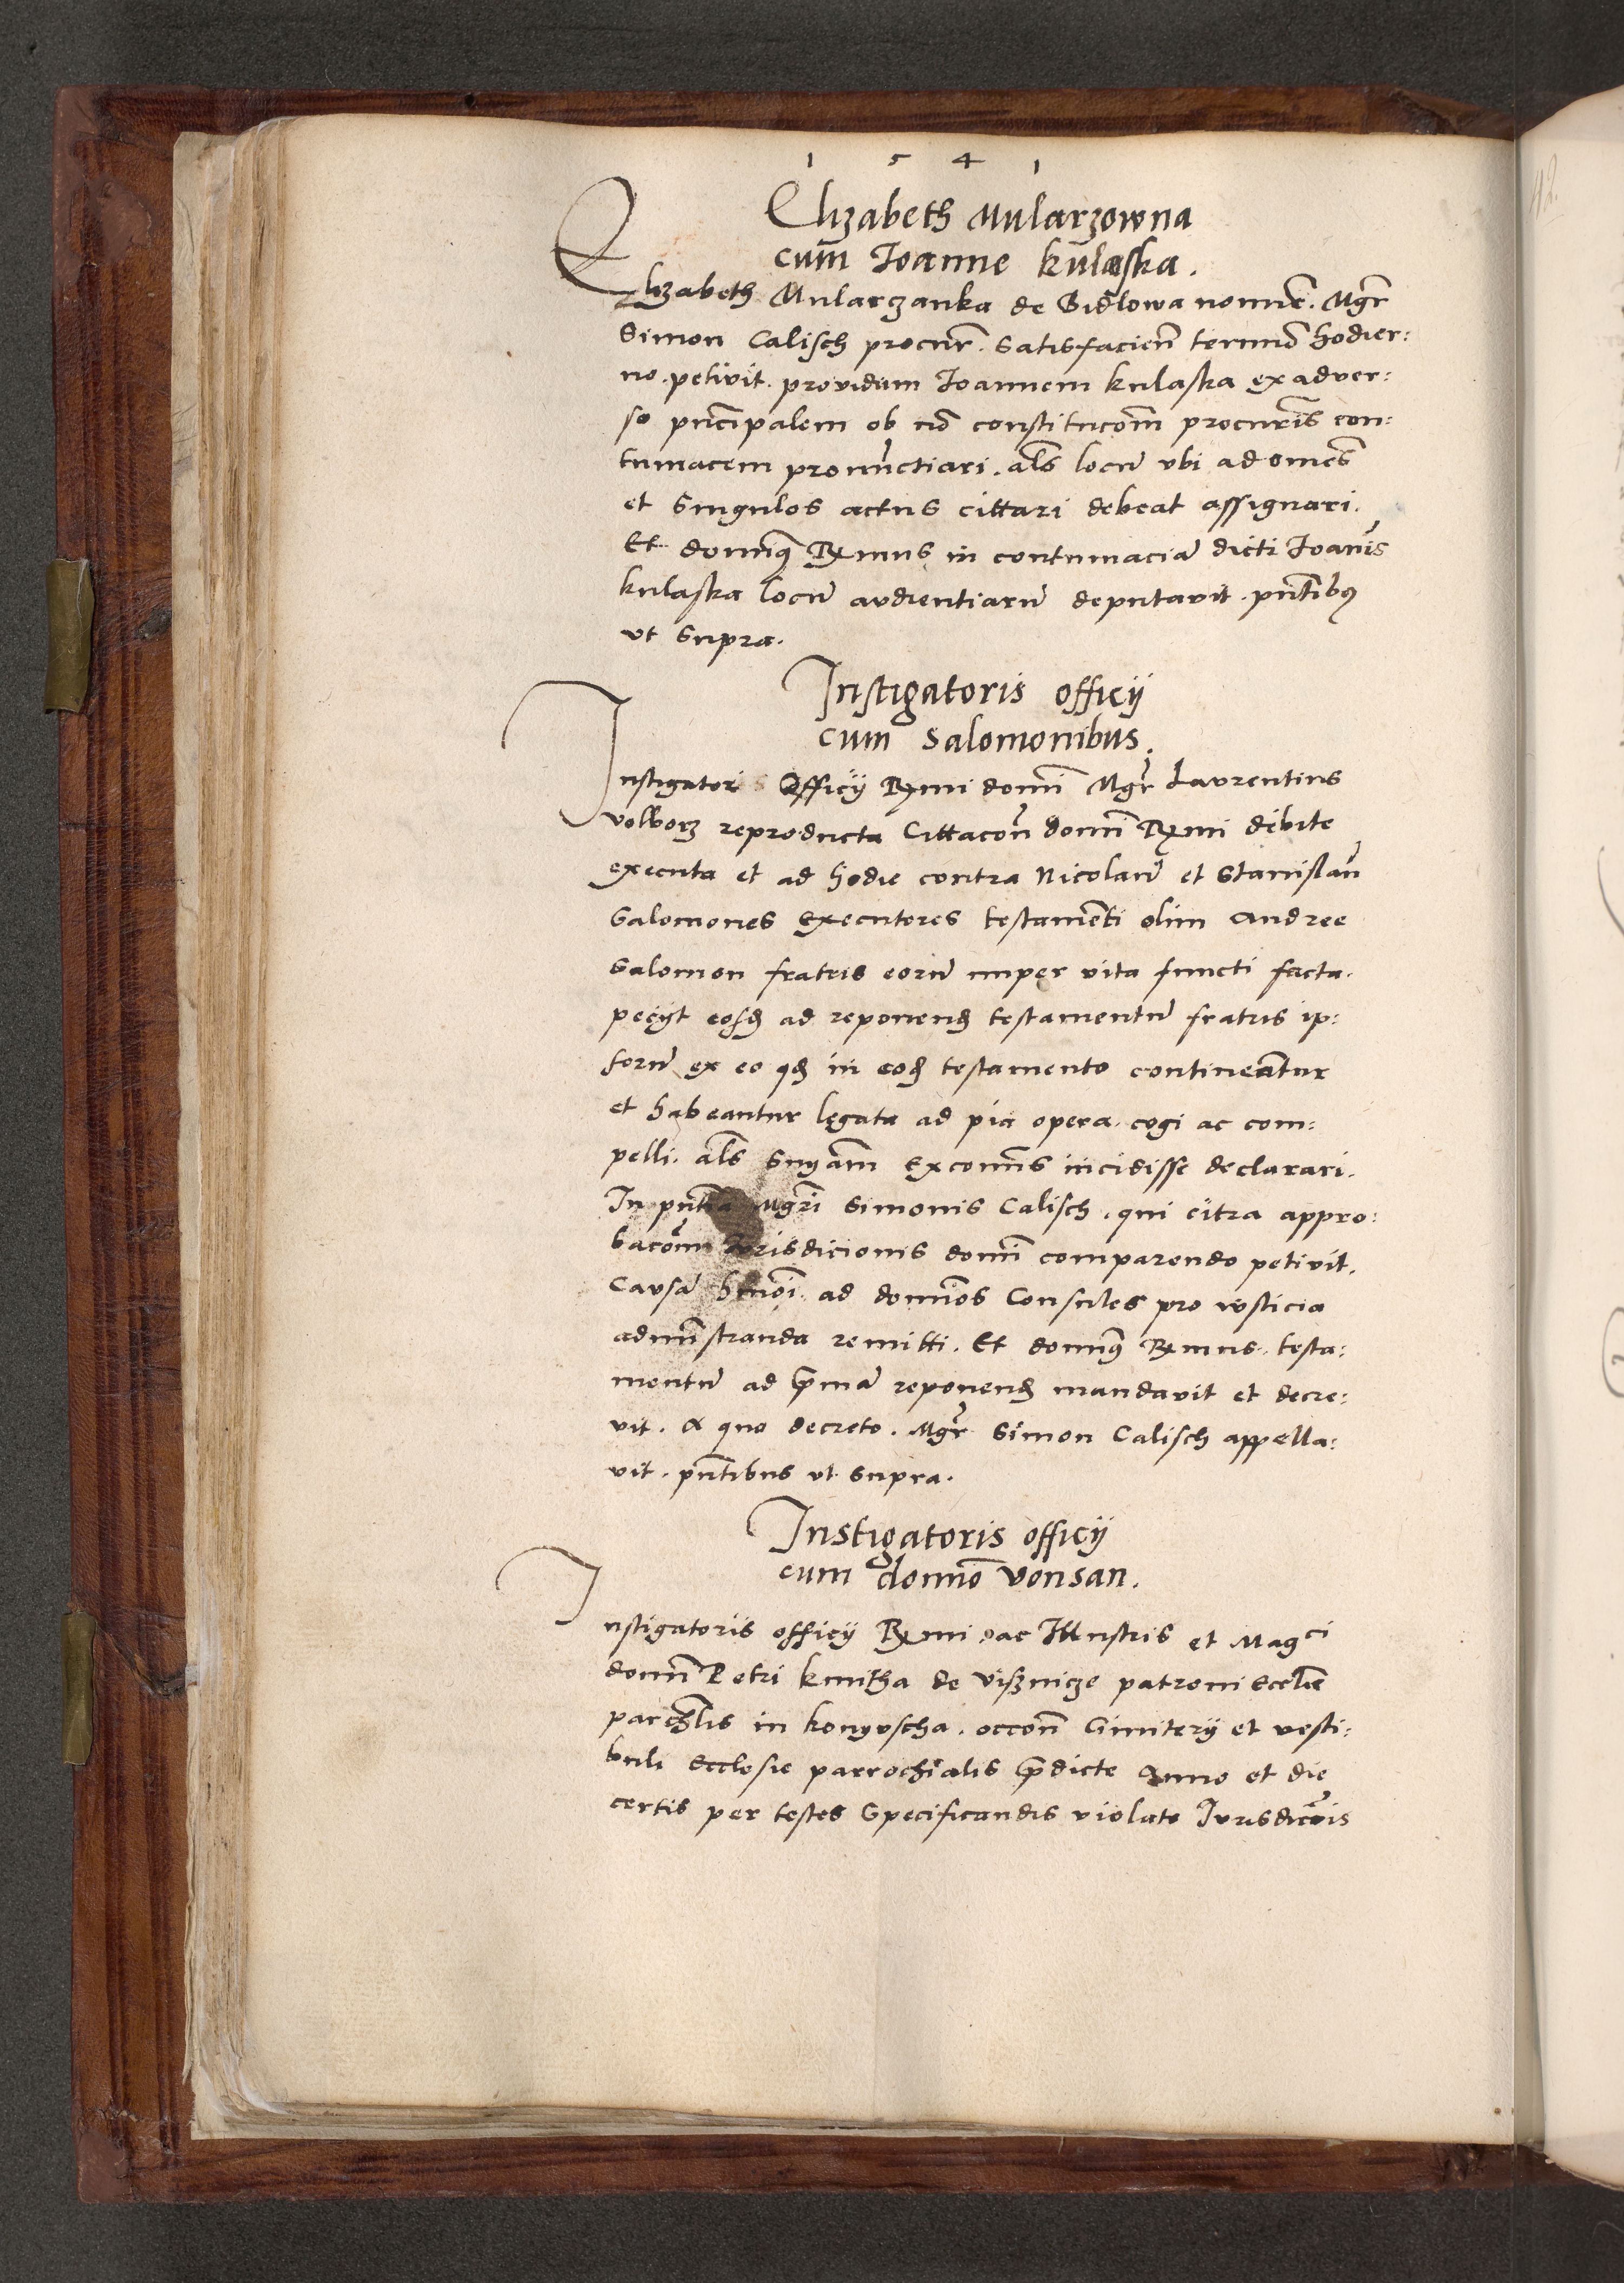 1 5 4 1
Elizabeth Mularzowna
cum Joanne kulaska.
Elizabeth Mularczanka de Gidlowa nomīe. Mgr̄
Simon Calisch procur̄. satisfacien̄ termīo hodier:
no. petivit. providum Joannem kulaska ex adver:
so prīcipalem ob nō constitucōm procurīs con:
tumacem pronūctiari. als̄ locū vbi ad omēs
et singulos actus cittari debeat assignari.
Et domīꝰ Rx̄mus in contumaciā dicti Joānis
kulaska locū audientiarū deputavit. pn̄tibꝰ
vt supra.
Instigatoris officij
cum Salomonibus.
Instigatoris Officij Rx̄mi domī Mgr̄ Laurentius
reproducta Cittacōn domī Rx̄mi debite
executa et ad hodie contra Nicolaū et Stanislaū
Salomones Executores testamēti olim Andree
Salomon fratris eorū nuper vita functi facta.
pecijt eosd̄ ad reponend̄ testamentū fratris ip:
sorū ex eo qd̄ in eod̄ testamento contineātur
et habeantur legata ad pia opera. cogi ac com:
pelli. als̄ sn̄yam excomīs incidisse declarari.
In pn̄tia Mgr̄i Simonis Calisch. qui citra appro:
bacōm Jurisdicionis domī comparendo petivit.
Causā hm̄oi. ad domīos Consules pro iusticia
admīstranda remitti. Et domīꝰ Rx̄mus. testa:
mentū ad prīmā reponend̄ mandavit et decre:
vit. A quo decreto. Mgr̄ Simon Calisch appella:
vit. pn̄tibus vt supra.
Instigatoris officij
cum domīo Vonsan.
Instigatoris officij Rx̄mi. ac Illustris et Mag^ci
domī Petri kmitha de Visznicze patroni Eccl̄ie
parch̄lis in konyvscha. occōn Cimiterij et vesti:
buli Ecclesie parrochialis pr̄dicte Anno et die
certis per testes Specificandis violate Jurisdicōis